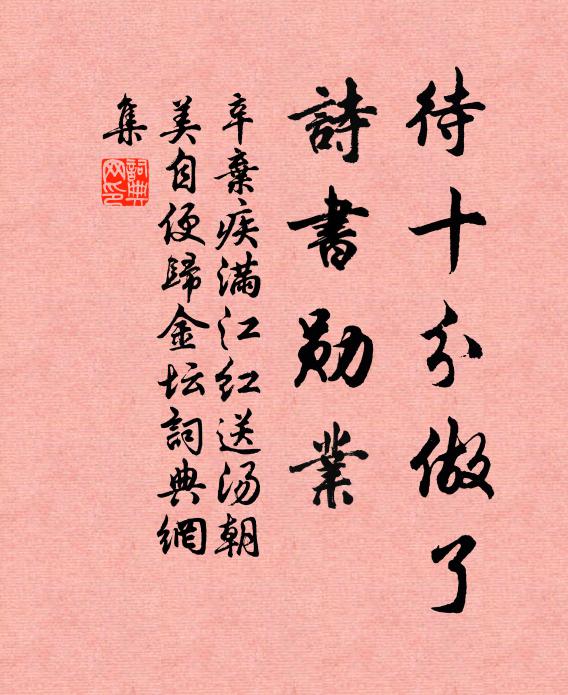 待十分做了
詩書勛業
辛棄疾滿江紅送汤朝
美自便歸金坛詞典網
集
詞典网印